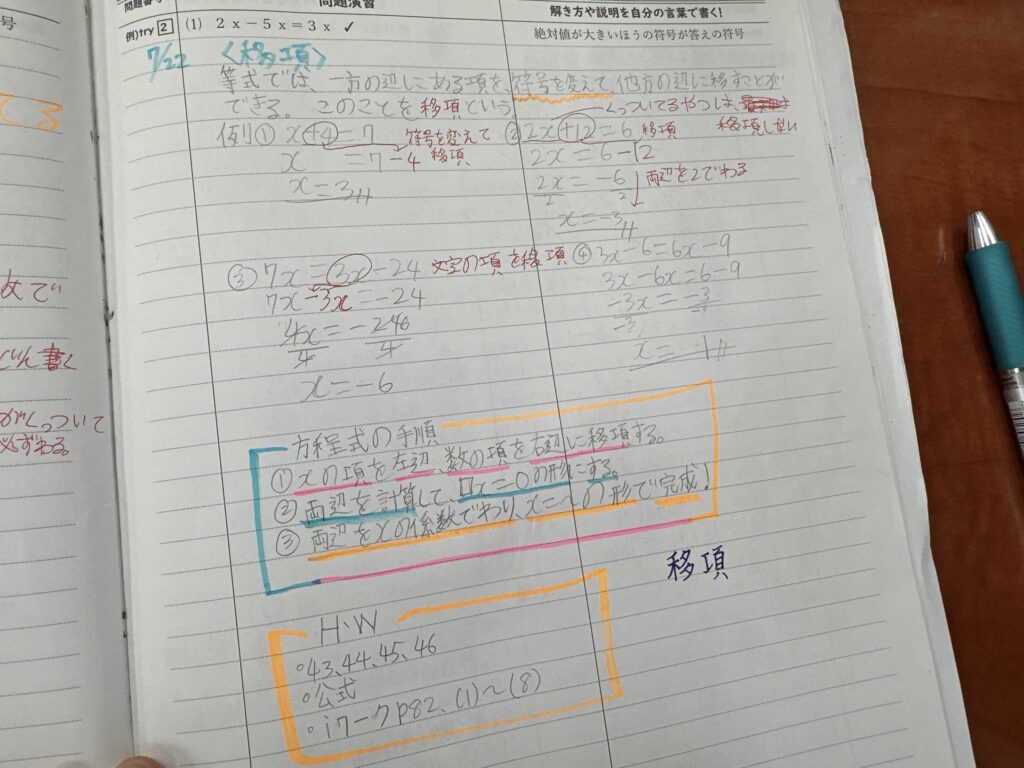 問題番号
問題演習
解き方や説明を自分の言葉で書く!
例)try 2 (1) 2x-5x=3x ✓
絶対値が大きいほうの符号が答えの符号
7/22 〈移項〉
等式では、一方の辺にある項を、符号を変えて他方の辺に移すことが
できる。このことを移項という。
くっついてるやつは、
移項しない
例)① x+4=7
符号を変えて
移項
x =7-4
x=3
② 2x+12=6 移項
2x=6-12
2x/2 = -6/2 両辺を2でわる
x=-3
③ 7x=3x-24 文字の項を移項
7x-3x=-24
4x/4 = -246/4
x=-6
④ 3x-6=6x-9
3x-6x=6-9
-3x/-3 = -3/-3
x=-1
方程式の手順
① xの項を左辺、数の項を右辺に移項する。
② 両辺を計算して、□x=○の形にする。
③ 両辺をxの係数でわり、x=~の形で完成!
移項
H・W
○43、44、45、46
○公式
○iワークP82、(1)~(8)
号
てる
めで
書く
がくっついて
必ずわる